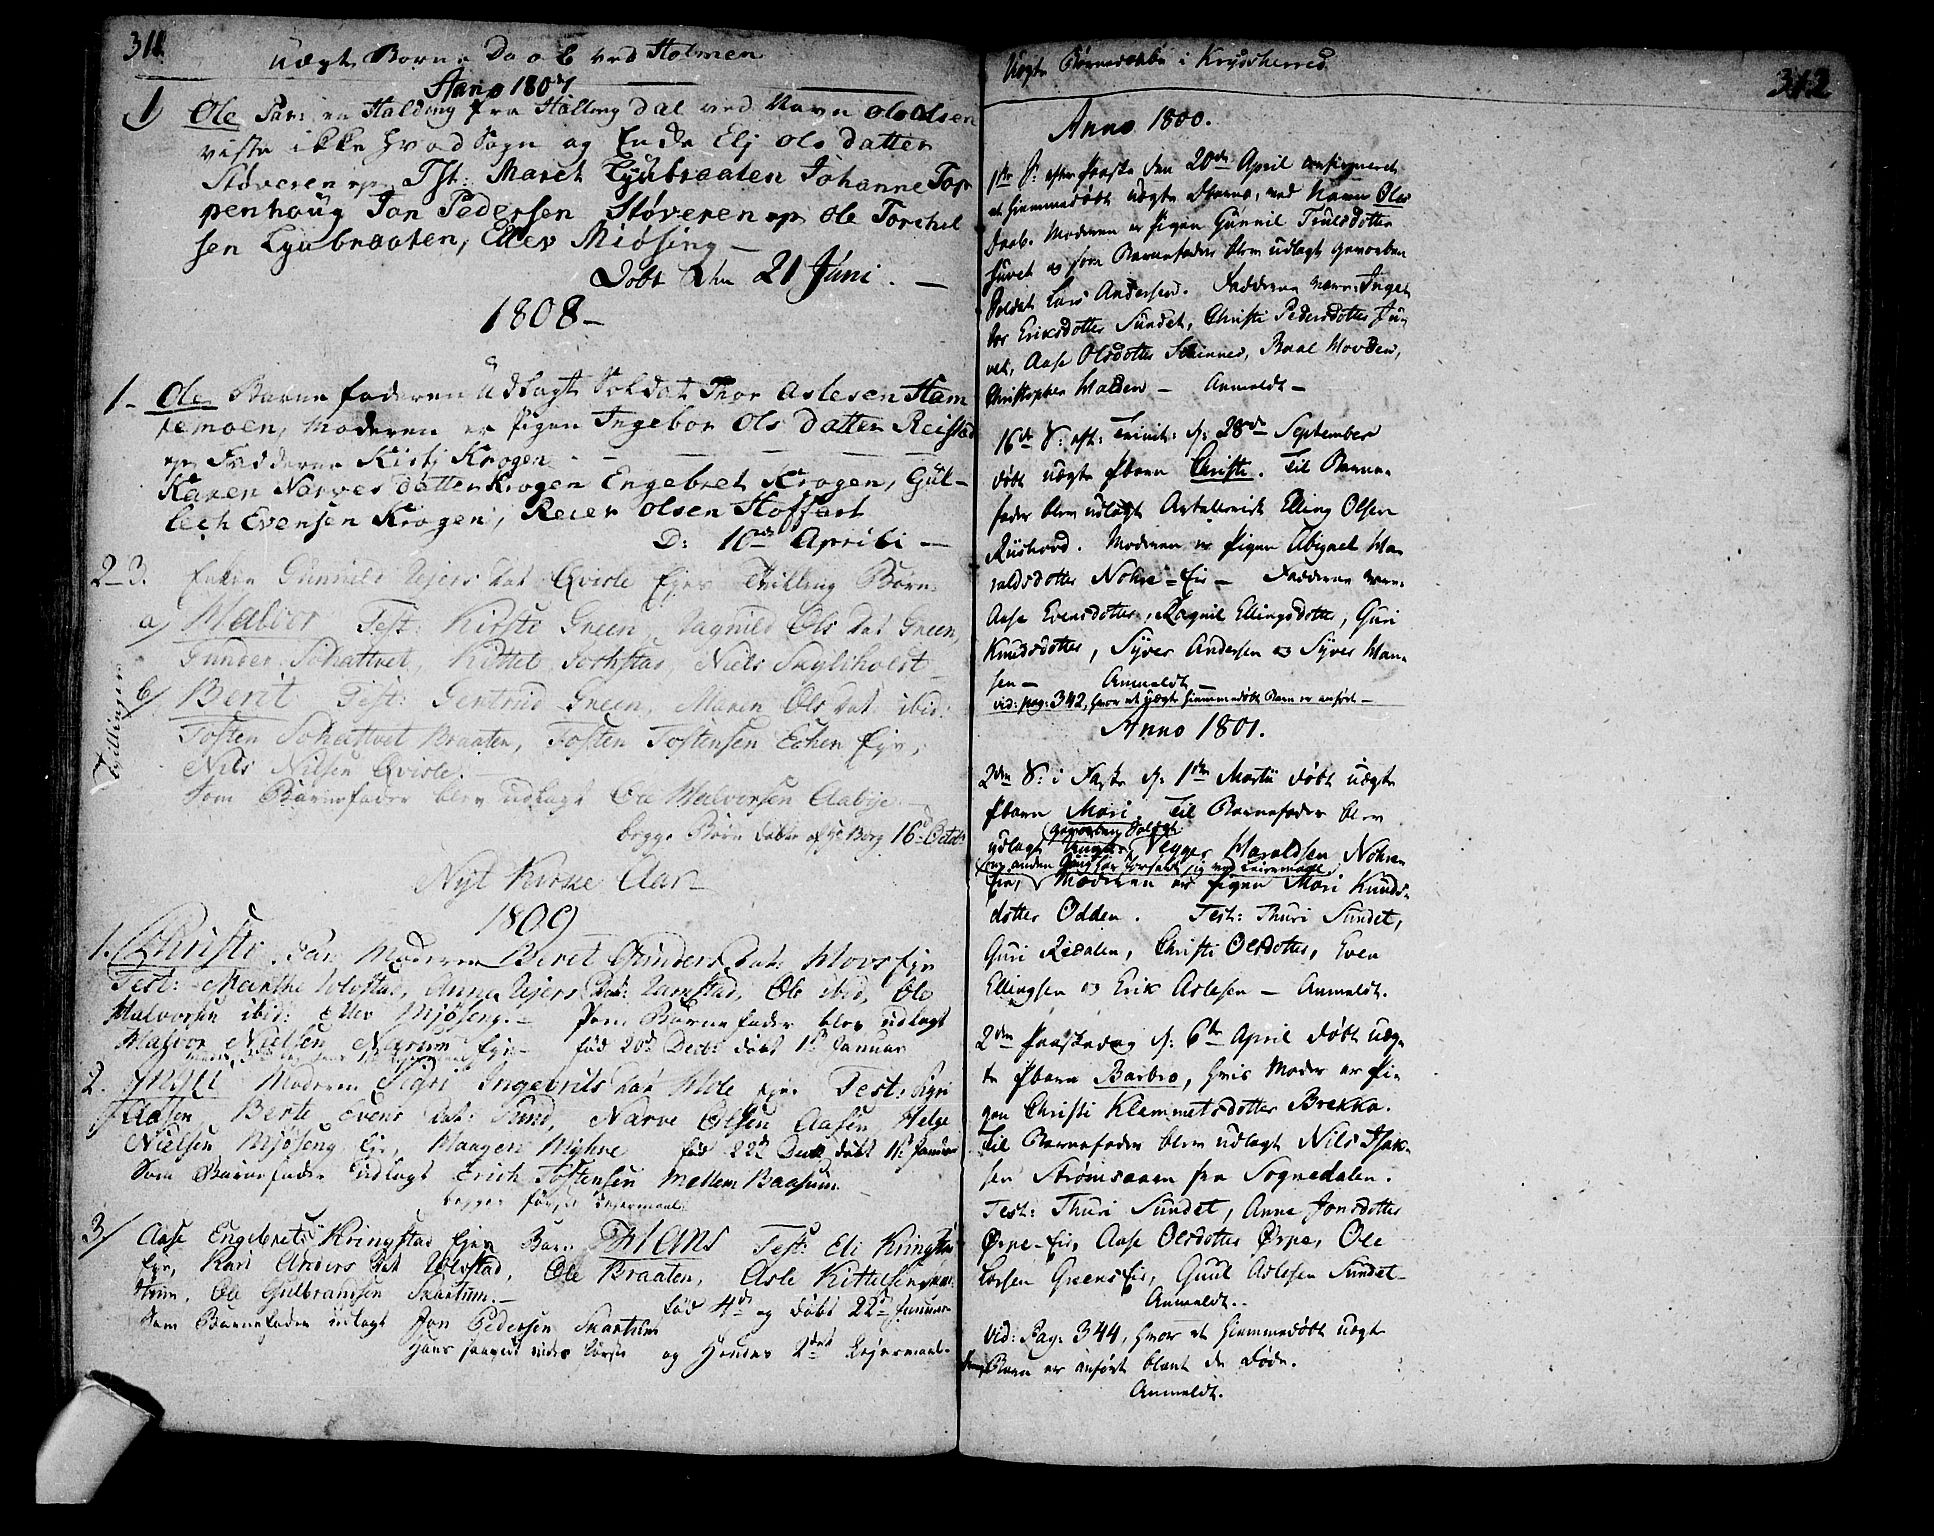 311
Uægte Børne Daab ved Holmen
Anno 1807
1) Ole Far: en Halding fra Halling dal ved Navn Ole Olsen
viste ikke hvad Sogn og Enke Eli Ols datter
Støveren Tst: Maret Lyubraaten Johanne Top
penhoug Jon Pedersen Støveren Ole Torchel
sen Lyubraaten, Ellev Miøsing —
Døbt den 21 Juni. —
1808 —
1 - Ole Barne faderen Udlagt Soldat Thor Aslesen Ham
remoen, Moderen er Pigen Ingebor Ols Datter Reistad
Fadderne Kisti Krogen
Karen Narves datter Krogen Engebret Krogen, Gul-
lech Evensen Krogen, Reier Olsen Hoffart
D: 10de Aprili —
2-3. Enken Gunnild Ujers dat Qvisle Eje Tvilling Børn
a) Halvor Test: Kirsti Green, Ragnild Ols dat Green,
Gunder Sohattvet, Kittel Niels
Tvillinger
b) Berit Test: Gertrud Green, Maren Ols dat ibid:
Tosten Sohattvet Braaten, Tosten Tostensen Echen Eje,
Nils Nilsen Qvisle. —
Som Barnefader blev udlagt Ole Halvorsen Aabye. —
begge Børn døbte 16d Octob:
Nyt Kirke Aar
1809
1. Christi, Moderen Beret Gunders dat: Hovs Eje
Test: Marthe Ulvstad, Anne Ujers dat: Ramstad, Ole ibid, Ole
Halvorsen ibid: Ellev Mjøseng. — Som Barnefader blev udlagt
Halvor Nielsen Narum Eje — fød 20d Decb: døbt 1d Januar
2. Moderen Sigri Ingebrits dat Hole Eje. Test: Siri
Aasen, Berte Evens dat: Sund, Narve Olsen Aasen Helge
Nielsen Mjøseng Eje, Haagen Myhre fød 22d Decb døbt 1d Januar
Som Barnefader udlagt Erich Tostensen Mellem Baasum
begges første Leiermaal
3) Aase Engebrets d. Kringstad Ejes Barn Hans Test: Eli Kringstad
Eje, Kari Anders dat Ulvstad, Ole Braaten, Asle Kittelsen
Ole Gulbrandsen Skartum. —
fød 4d og døbt 22d Januar
Som Barnefader udlagt Jon Pedersen Skartum
Hans første og Hendes 2det Lejermaal.
Uægte Børnedaab i Krydsherred
312
Anno 1800.
1ste S: efter Paaske den 20de April confirmeret
et hiemmedøbt uægte Pbarns, ved Navn Oles
Daab. Moderen er Pigen Gunnil Trulsdotter
Juvet og som Barnefader blev udlagt gevorben
Soldat Lars Andersen. Fadderne vare: Inge-
bor Eriksdotter Sundet, Christi Pedersdotter Ju-
vet, Aase Olsdotter, Baal Hovden,
Christopher Halden — Anmeldt —
16de S: eft: Trinit: d: 28de September
døbt uægte Pbarn Christi. Til Barne-
fader blev udlagt Artillerist Elling Olsen
Riishovd. Moderen er Pigen Abigael Ha-
raldsdotter Nohre-Eie — Fadderne vare
Aase Evensdotter, Ragnil Ellingsdotter, Guri
Knudsdotter, Syver Andersen og Syver Han-
sen — Anmeldt —
vid: pag: 342, hvor et uægte hiemmedøbt Barn er anført —
Anno 1801.
2den S: i Faste d: 1ste Martii døbt uægte
Pbarn Mari. Til Barnefader blev
udlagt gevorben Soldat Vegger Haraldsen Nohre-
Eie, Moderen er Pigen Mari Knuds-
dotter Odden. Test: Thuri Sundet,
Guri Redalen, Christi Olsdotter, Even
Ellingsen og Erik Aslesen — Anmeldt.
2den Paaskedag d: 6te April døbt uæg-
te Pbarn Barbro, hvis Moder er Pi-
gen Christi Klemmetsdotter Brekka.
Til Barnefader blev udlagt Nils Isak-
sen Strømsaaen fra Sognedalen.
Test: Thuri Sundet, Anne Jonsdotter
Ørpe-Eie, Aase Olsdotter Ørpe, Ole
Larsen Greens Eie, Guul Aslesen Sundet —
Anmeldt. —
vid: Pag: 344, hvor et hiemmedøbt uægte
Barn er anført blant de døde.
Anmeldt.